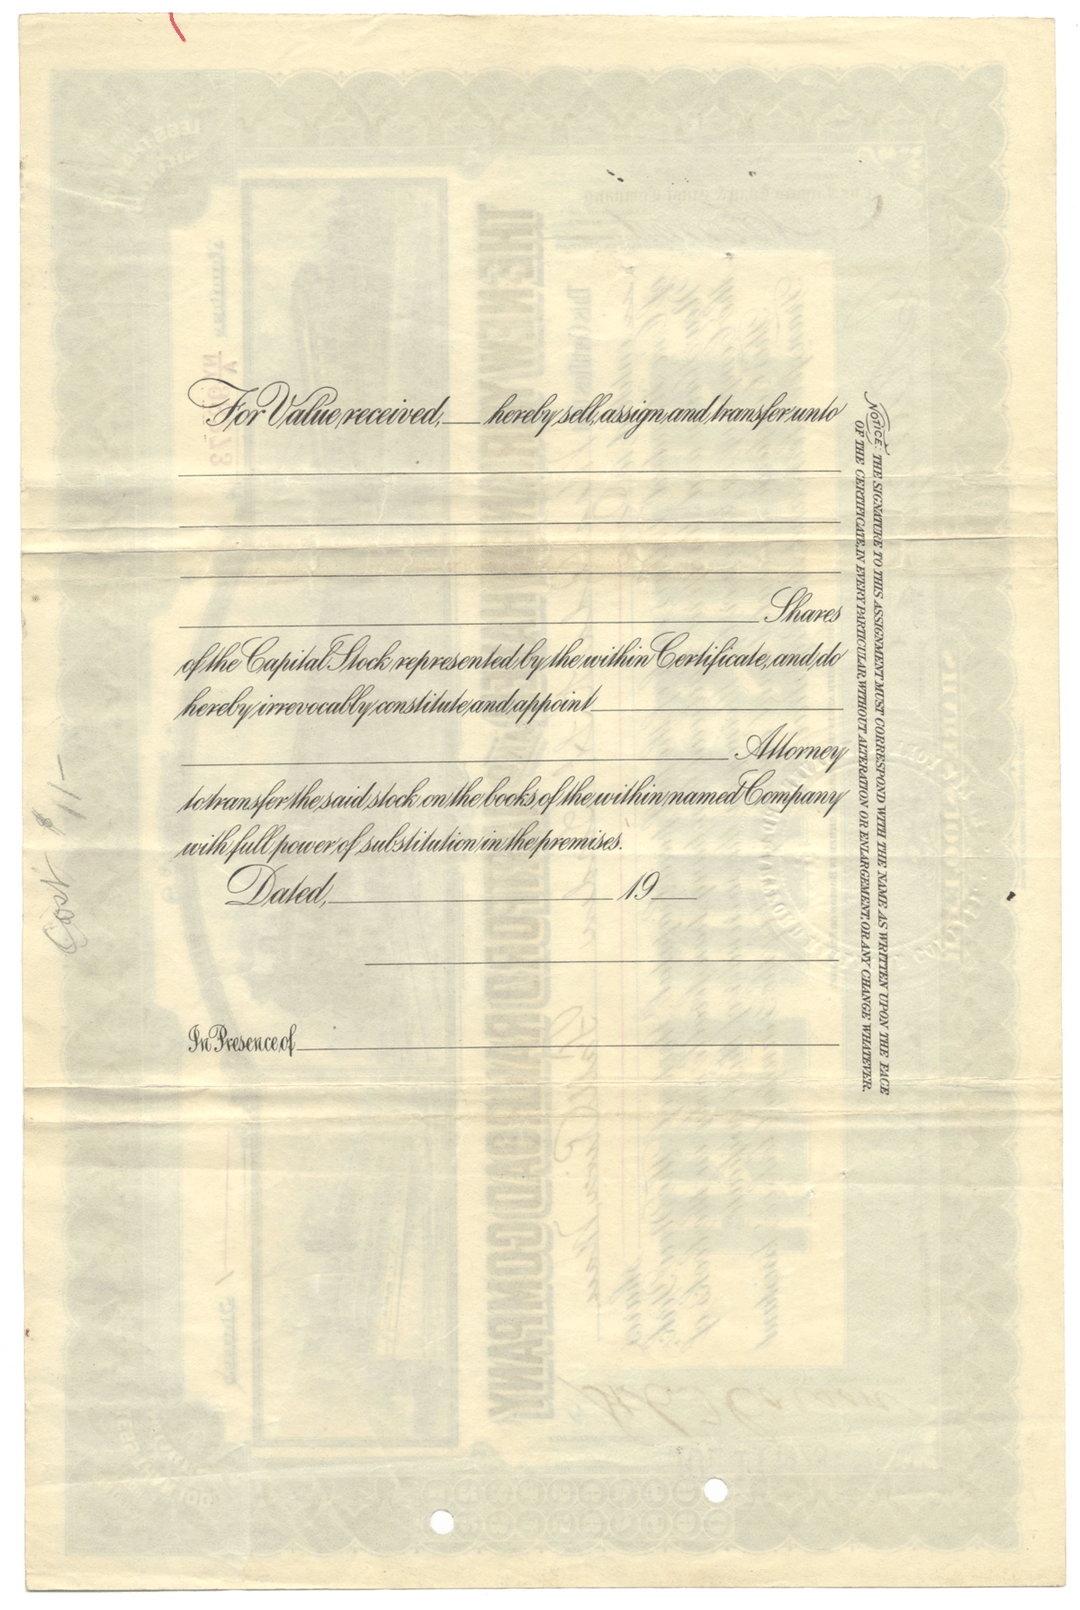 For Value received, ___ hereby sell, assign and transfer unto
Shares
of the Capital Stock represented by the within Certificate, and do
hereby irrevocably constitute and appoint
Attorney
to transfer the said stock on the books of the within named Company
with full power of substitution in the premises.
Dated, 19
In Presence of
NOTICE: THE SIGNATURE TO THIS ASSIGNMENT MUST CORRESPOND WITH THE NAME AS WRITTEN UPON THE FACE
OF THE CERTIFICATE, IN EVERY PARTICULAR, WITHOUT ALTERATION OR ENLARGEMENT, OR ANY CHANGE WHATEVER.
Cost $ 11/-